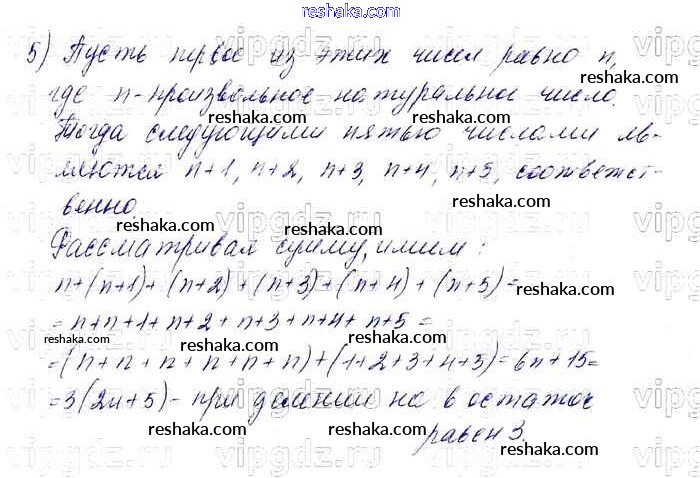 reshaka.com
5) Пусть первое из этих чисел равно n,
reshaka.com reshaka.com
где n - произвольное натуральное число.
Тогда следующими пятью числами яв-
ляются n+1, n+2, n+3, n+4, n+5, соответст-
reshaka.com reshaka.com reshaka.com
венно.
reshaka.com
Рассматривая сумму, имеем:
reshaka.com
n+(n+1)+(n+2)+(n+3)+(n+4)+(n+5)=
reshaka.com
=n+n+1+n+2+n+3+n+4+n+5=
reshaka.com reshaka.com
=(n+n+n+n+n+n)+(1+2+3+4+5)=6n+15=
reshaka.com
=3(2n+5) - при делении на 6 остаток
reshaka.com reshaka.com reshaka.com
равен 3.